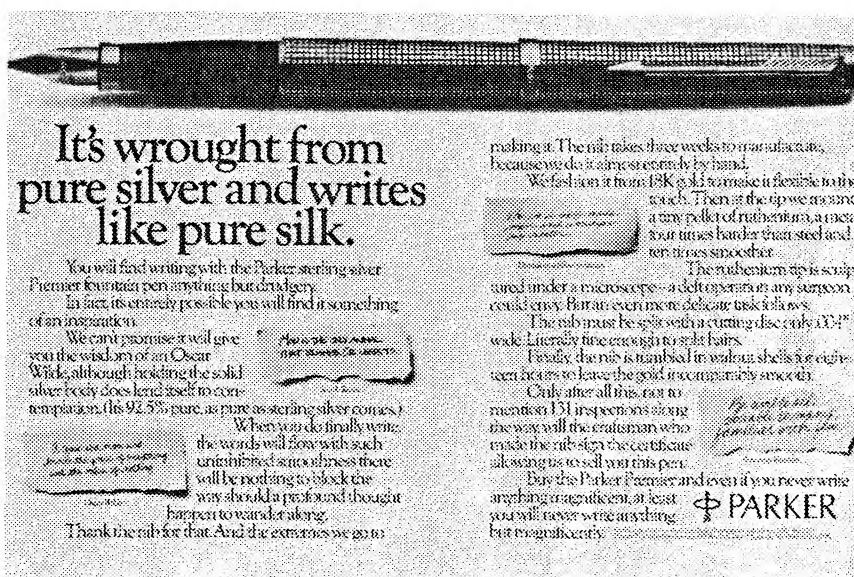 It's wrought from
pure silver and writes
like pure silk.
You will find writing with the Parker sterling silver
Premier fountain pen anything but drudgery.
In fact, its entirely possible you will find it something
of an inspiration.
We can't promise it will give
you the wisdom of an Oscar
Wilde, although holding the solid
silver body does lend itself to con-
templation. (It's 92.5% pure, as pure as sterling silver comes.)
When you do finally write,
the words will flow with such
uninhibited smoothness there
will be nothing to block the
way should a profound thought
happen to wander along.
Thank the nib for that. And the extremes we go to
making it. The nib takes three weeks to manufacture,
because we do it almost entirely by hand.
We fashion it from 18K gold to make it flexible to the
touch. Then at the tip we mount
a tiny pellet of ruthenium, a metal
four times harder than steel and
ten times smoother.
The ruthenium tip is sculp-
tured under a microscope—a deft operation any surgeon
could envy. But an even more delicate task follows.
The nib must be split with a cutting disc only .004"
wide. Literally fine enough to split hairs.
Finally, the nib is tumbled in walnut shells for eigh-
teen hours to leave the gold incomparably smooth.
Only after all this, not to
mention 131 inspections along
the way, will the craftsman who
made the nib sign the certificate
allowing us to sell you this pen.
Buy the Parker Premier and even if you never write
anything magnificent, at least
you will never write anything
but magnificently.
PARKER